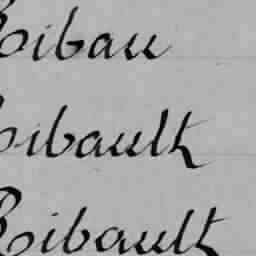 Ribau
Ribault
Ribault